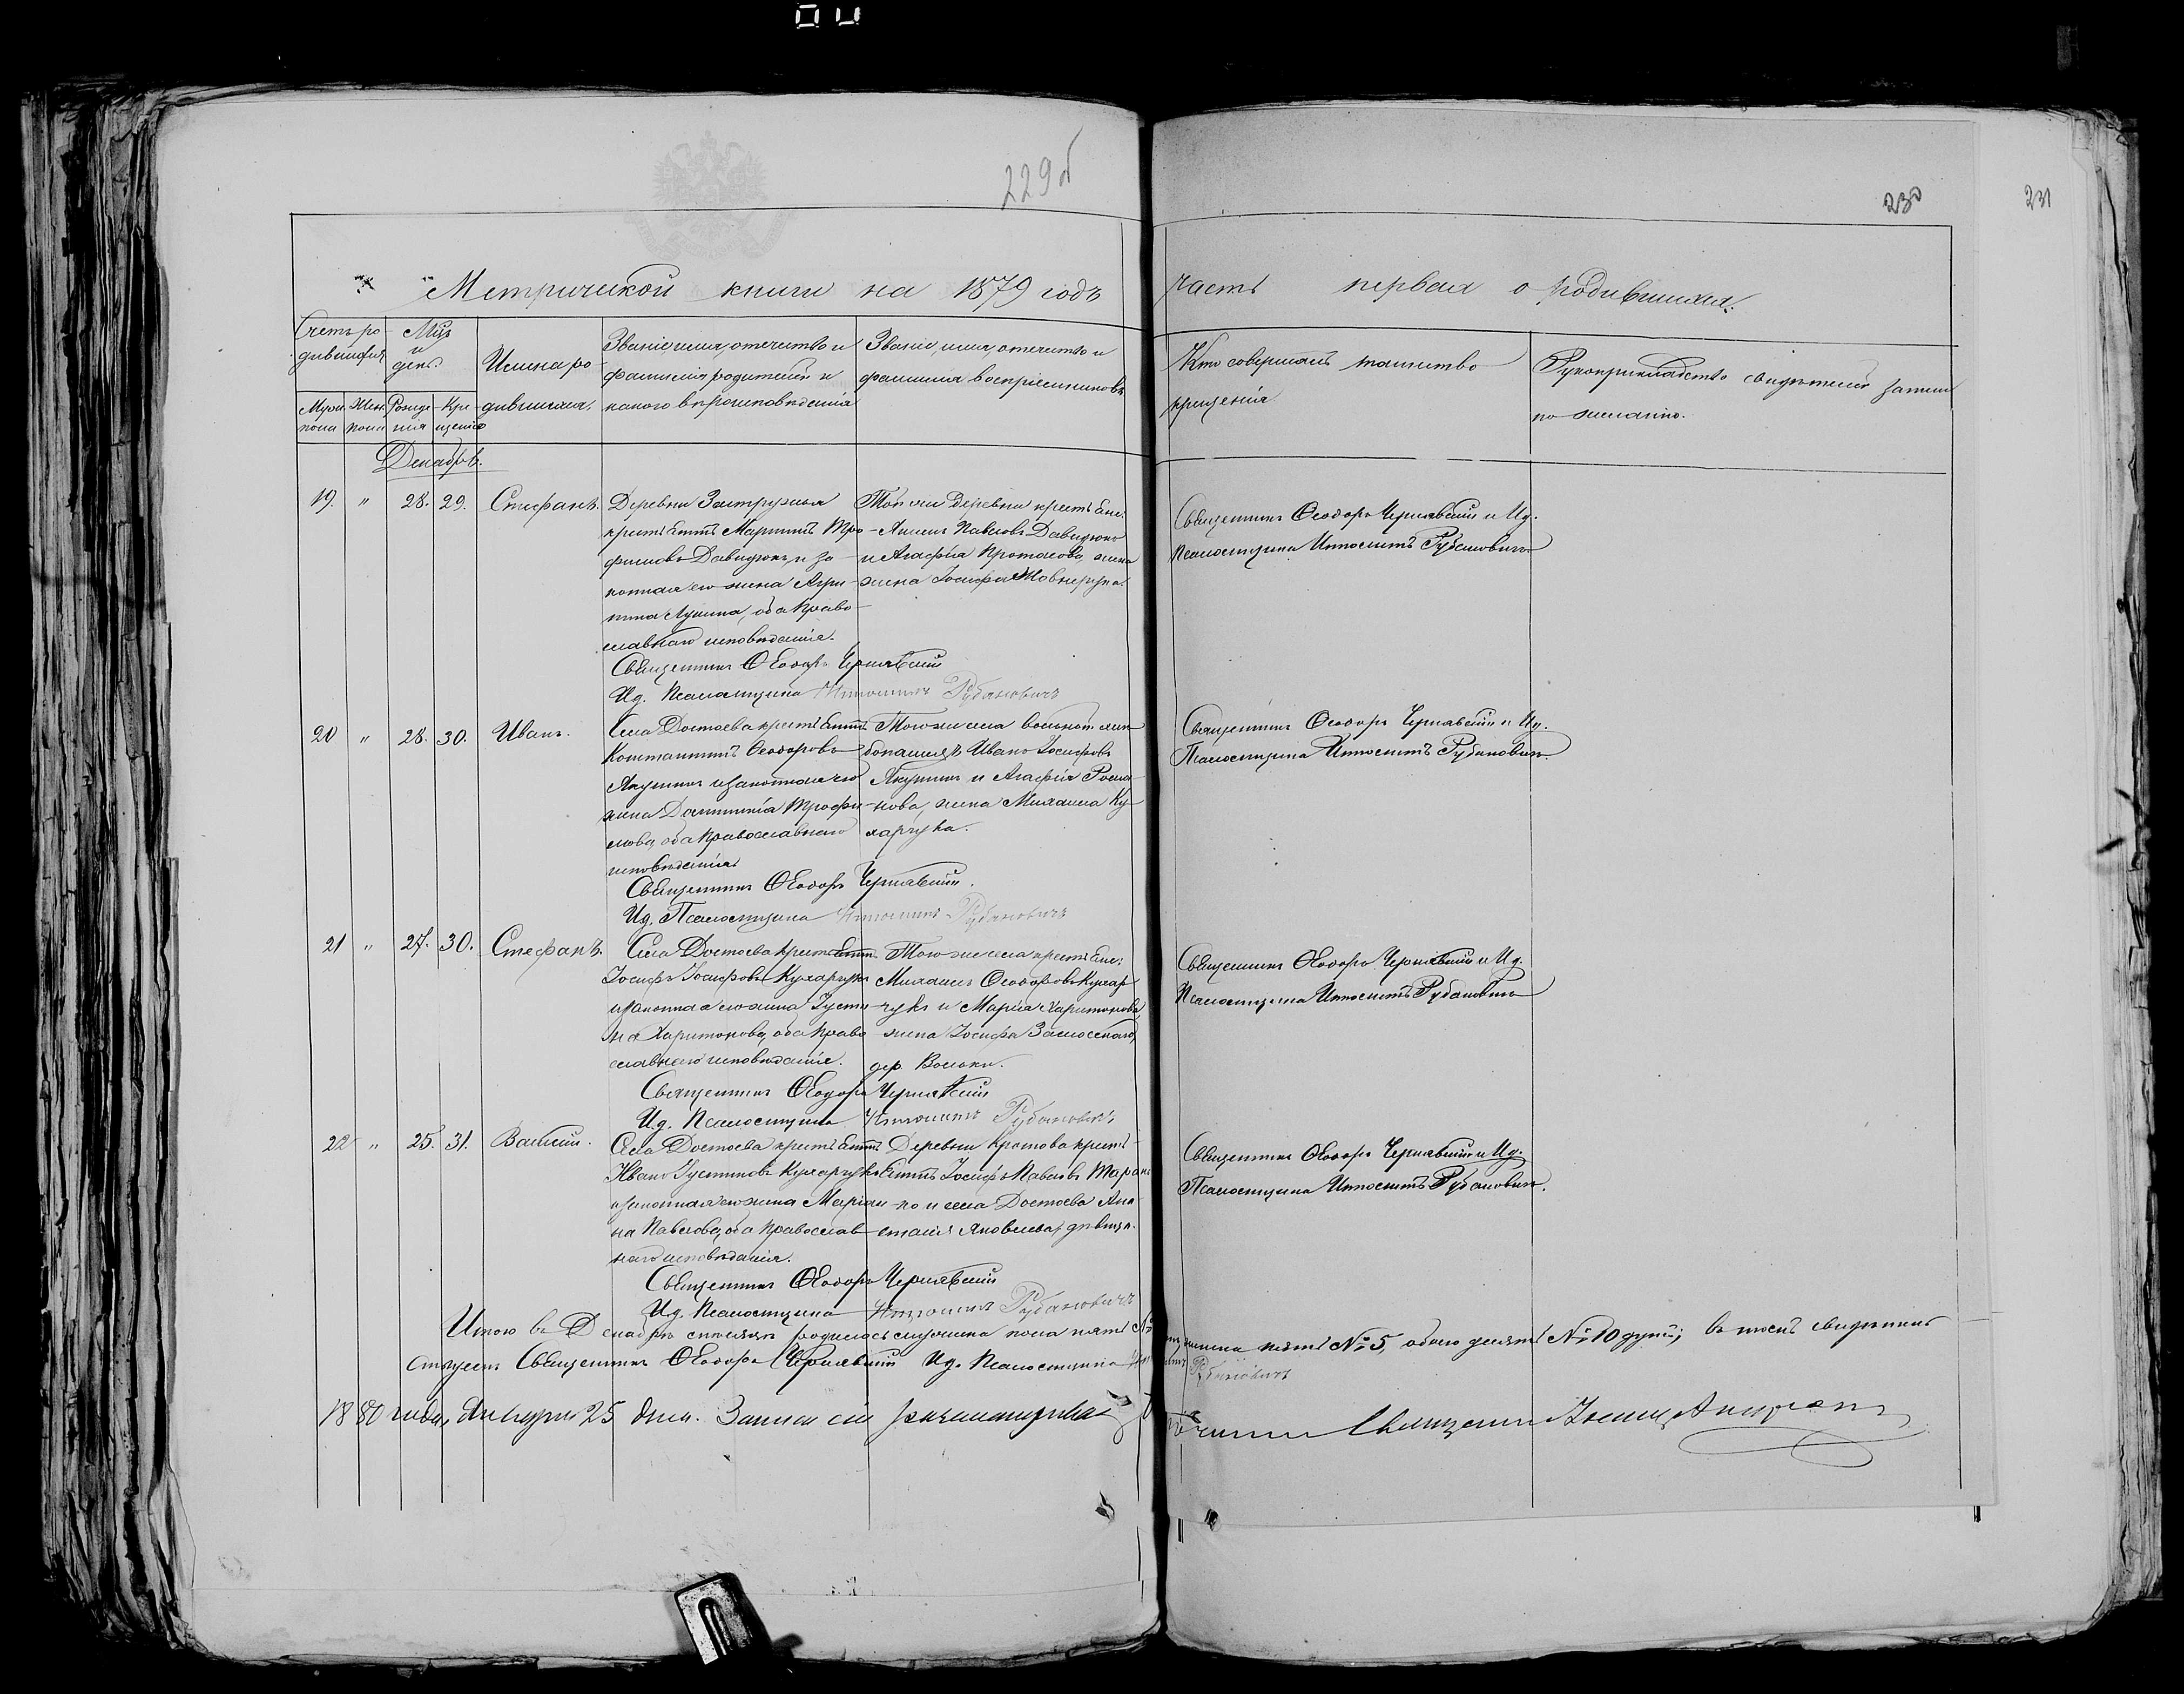 229б
230
231
Метрической книги на 1879 годъ
часть первая о родившихся.
Счетъ ро-
дившихся
Мужеск. пола
Женск. пола
Мѣс. и день.
Рожде-
нія
Кре-
щенія
Имена ро-
дившихся.
Званіе, имя, отчество и
фамилія родителей и
какого вѣроисповѣданія
Званіе, имя, отчество и
фамилія воспріемниковъ
Кто совершалъ таинство
крещенія
Рукоприкладство свидѣтелей записи
по желанію.
Декабрь.
19. " 28. 29. Стефанъ.
Деревни
крестьянинъ Мартинъ Тро-
фимовъ Давидюкъ, и за-
конная его жена Агри-
пина Лукина, оба право-
славнаго исповѣданія.
Священникъ Ѳеодоръ Чернявскій
Ид. Псаломщика Ипполитъ Рубановичъ
Той же деревни крест.
Павловъ Давидюкъ
и Агафія Протасова, жена
жена Іосифа
Священникъ Ѳеодоръ Чернявскій и Ид.
Псаломщика Ипполитъ Рубановичъ
20 " 28. 30. Иванъ.
Села Достоева крестьянинъ
Константинъ Ѳеодоровъ
Якушикъ и законная его
жена Домникія Трофи-
мова, оба православнаго
исповѣданія
Священникъ Ѳеодоръ Чернявскій.
Ид. Псаломщика Ипполитъ Рубановичъ
Того же села
Иванъ Іосифовъ
Якушикъ и Агафія Рома-
нова, жена Михаила Ку-
харчука.
Священникъ Ѳеодоръ Чернявскій и Ид.
Псаломщика Ипполитъ Рубановичъ.
21 " 27. 30. Стефанъ.
Села Достоева крестьянинъ
Іосифъ Іосифовъ Кухарчукъ
и законная его жена Густи-
на Харитонова, оба право-
славнаго исповѣданія.
Священникъ Ѳеодоръ Чернявскій
Ид. Псаломщика Ипполитъ Рубановичъ
Того же села крест.
Михаилъ Ѳеодоровъ Кухар-
чукъ и Марія Харитонова,
жена Іосифа
дер. Вольки.
Священникъ Ѳеодоръ Чернявскій и Ид.
Псаломщика Ипполитъ Рубановичъ
22 " 25. 31. Василій.
Села Достоева крестьянинъ
Иванъ Устиновъ Кухарчукъ
и законная его жена Маріан-
на Павлова, оба православ-
наго исповѣданія.
Священникъ Ѳеодоръ Чернявскій
Ид. Псаломщика Ипполитъ Рубановичъ
Деревни Кротова кресть-
янинъ Іосифъ Павловъ
и села Достоева Ана-
стасія Яковлева, дѣвица.
Священникъ Ѳеодоръ Чернявскій и Ид.
Псаломщика Ипполитъ Рубановичъ.
Итого въ Декабрѣ мѣсяцѣ родилось мужеска пола пять № 5, женска пять № 5, обоего десять № 10 душъ; въ чемъ свидѣтель-
ствуемъ Священникъ Ѳеодоръ Чернявскій Ид. Псаломщика Ипполитъ Рубановичъ
1880 года, Января 25 дня. Записи сіи разсматривалъ
Священникъ